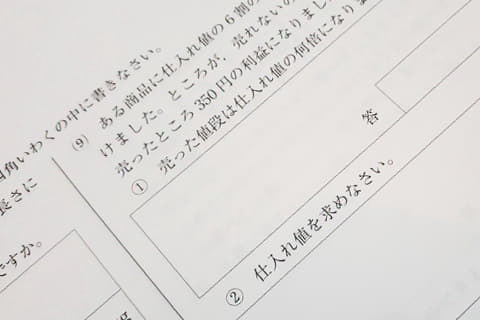 四角いわくの中に書きなさい。
長さに
ですか。
(9) ある商品に仕入れ値の6割の
けました。ところが，売れないの
売ったところ350円の利益になりました
① 売った値段は仕入れ値の何倍になりま
答
② 仕入れ値を求めなさい。